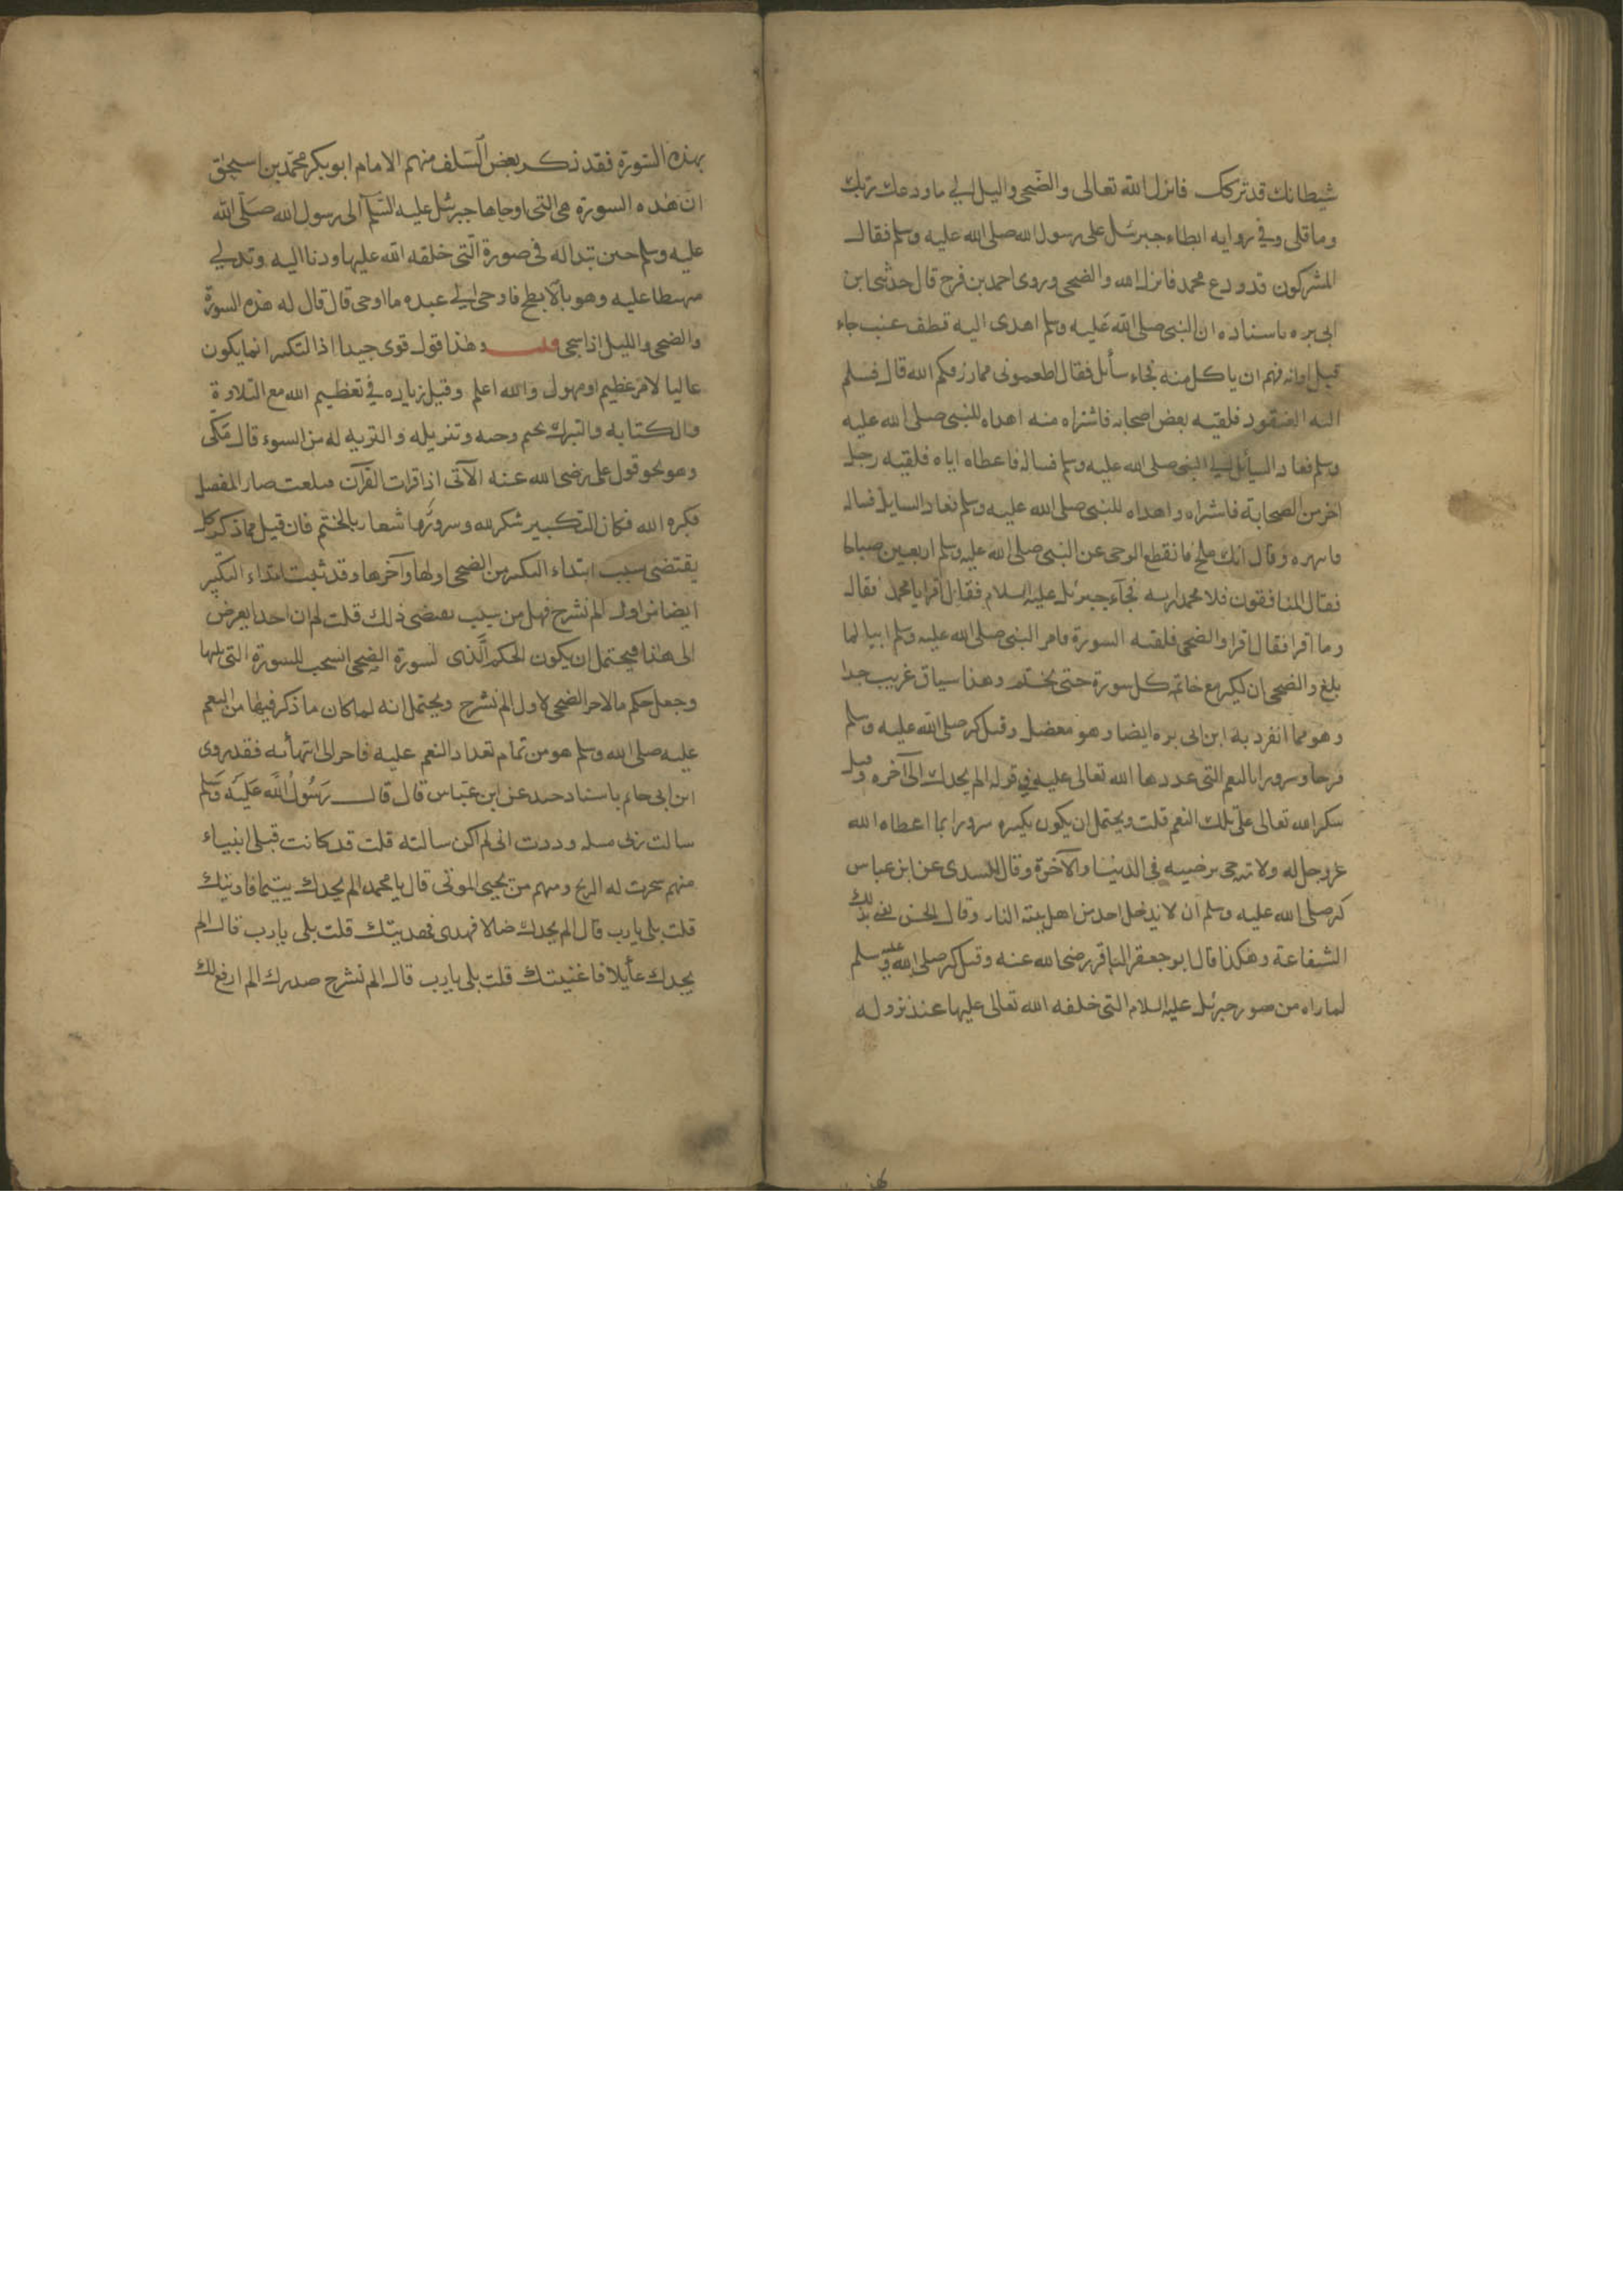 شيطانك قد تركك فانزل الله تعالى والضحى والليل الي ما ودعك ربك
وما قلى وفي روايه ابطاء جبرئيل على رسول الله صلى الله عليه وسلم فقال
المشركون قد ودع محمد فانزل الله والضحى وروى احمد بن فرح قال حدثنى ابن
ابى بره باسناده ان النبى صلى الله عليه وسلم اهدى اليه قطف عنب جاء
قبل اوانه فهم ان ياكل منه فجاء سائل فقال اطعمونى مما رزقكم الله قال فسلم
اليه العنقود فلقيه بعض اصحابه فاشتراه منه اهداه للنبى صلى الله عليه
وسلم فعاد السائل الي النبى صلى الله عليه وسلم فساله فاعطاه اياه فلقيه رجل
اخر من الصحابة فاشتراه واهداه للنبى صلى الله عليه وسلم فعاد السايل فساله
فانهره وقال انك ملح فانقطع الوحى عن النبى صلى الله عليه وسلم اربعين صباحا
فقال المنافقون قلا محمدا ربه فجآء جبرئيل عليه السلام فقال اقرا يا محمد فقال
وما اقرا فقال اقرا والضحى فلقنه السورة فامر النبى صلى الله عليه وسلم ابيا لما
بلغ والضحى ان يكبر مع خاتمه كل سورة حتى يختم وهذا سياق غريب جدا
وهو مما انفرد به ابن ابى بره ايضا وهو معضل وقيل كبر صلى الله عليه وسلم
فرحا وسرورا بالنعم التى عددها الله تعالى عليه فى قوله الم يجدك الى آخره وقيل
شكرا لله تعالى على تلك النعم قلت ويحتمل ان يكون تكبيره سرورا بما اعطاه الله
عز وجل له ولا مته حى يرضيه فى الدنيا والآخرة وقال السدى عن ابن عباس
كبر صلى الله عليه وسلم ان لا يدخل احد من اهل بيته النار وقال الحسن يعنى بذلك
الشفاعة وهكذا قال ابو جعفر الباقر رضى الله عنه وقيل كبر صلى الله عليه وسلم
لما راه من صور جبرئيل عليه السلام التى خلقه الله تعالى عليها عند نزوله
بهذه السورة فقد ذكر بعض السلف منهم الامام ابو بكر محمد بن اسحق
ان هذه السورة هى التى اوحاها جبرئيل عليه السلم الى رسول الله صلى الله
عليه وسلم حين تبدا له فى صورة التى خلقه الله عليها ودنا اليه وتدلي
منهبطا عليه وهو بالابطح فاوحى الي عبده ما اوحى قال قال له هذه السورة
والضحى والليل اذا سجى قلت وهذا قول قوى جيد اذ التكبير انما يكون
غالبا لامر عظيم او مهول والله اعلم وقيل زياده في تعظيم الله مع التلاوة
والكتابه والتبرك بختم وحيه وتنزيله والتنزيه له من السوء قال مكى
وهو نحو قول على رضى الله عنه الآتى اذا قرات القرآن فبلغت قصار المفصل
فكبره الله فكان التكبير شكر لله وسرورا واشعار بالختم فان قيل مما ذكر كله
يقتضى سبب ابتداء التكبير من الضحى اولها وآخرها وقد ثبت ابتداء التكبير
ايضا من اول الم نشرح فهل من سبب يقتضى ذلك قلت لم ار احدا يعرض
الى هذا فيحتمل ان يكون الحكم الذى لسورة الضحى انسحب للسورة التى تليها
وجعل حكم ما لاخر الضحى لاول الم نشرح ويحتمل انه لما كان ما ذكر فيها من النعم
عليه صلى الله وسلم هو من تمام تعداد النعم عليه فاخر الى انتهائه فقد روى
ابن ابى حاتم باسناد جيد عن ابن عباس قال قال رسول الله عليه وسلم
سالت ربى مسله وددت انى لم اكن سالته قلت قد كانت قبلى انبياء
منهم سخرت له الريح ومنهم من يحيى الموتى قال يا محمد الم يجدك يتيما فاويتك
قلت بلى يا رب قال الم يجدك ضالا فهدى فهديتك قلت بلى يا رب قال الم
يجدك عايلا فاغنيتك قلت بلى يا رب قال الم نشرح صدرك الم ارفع لك